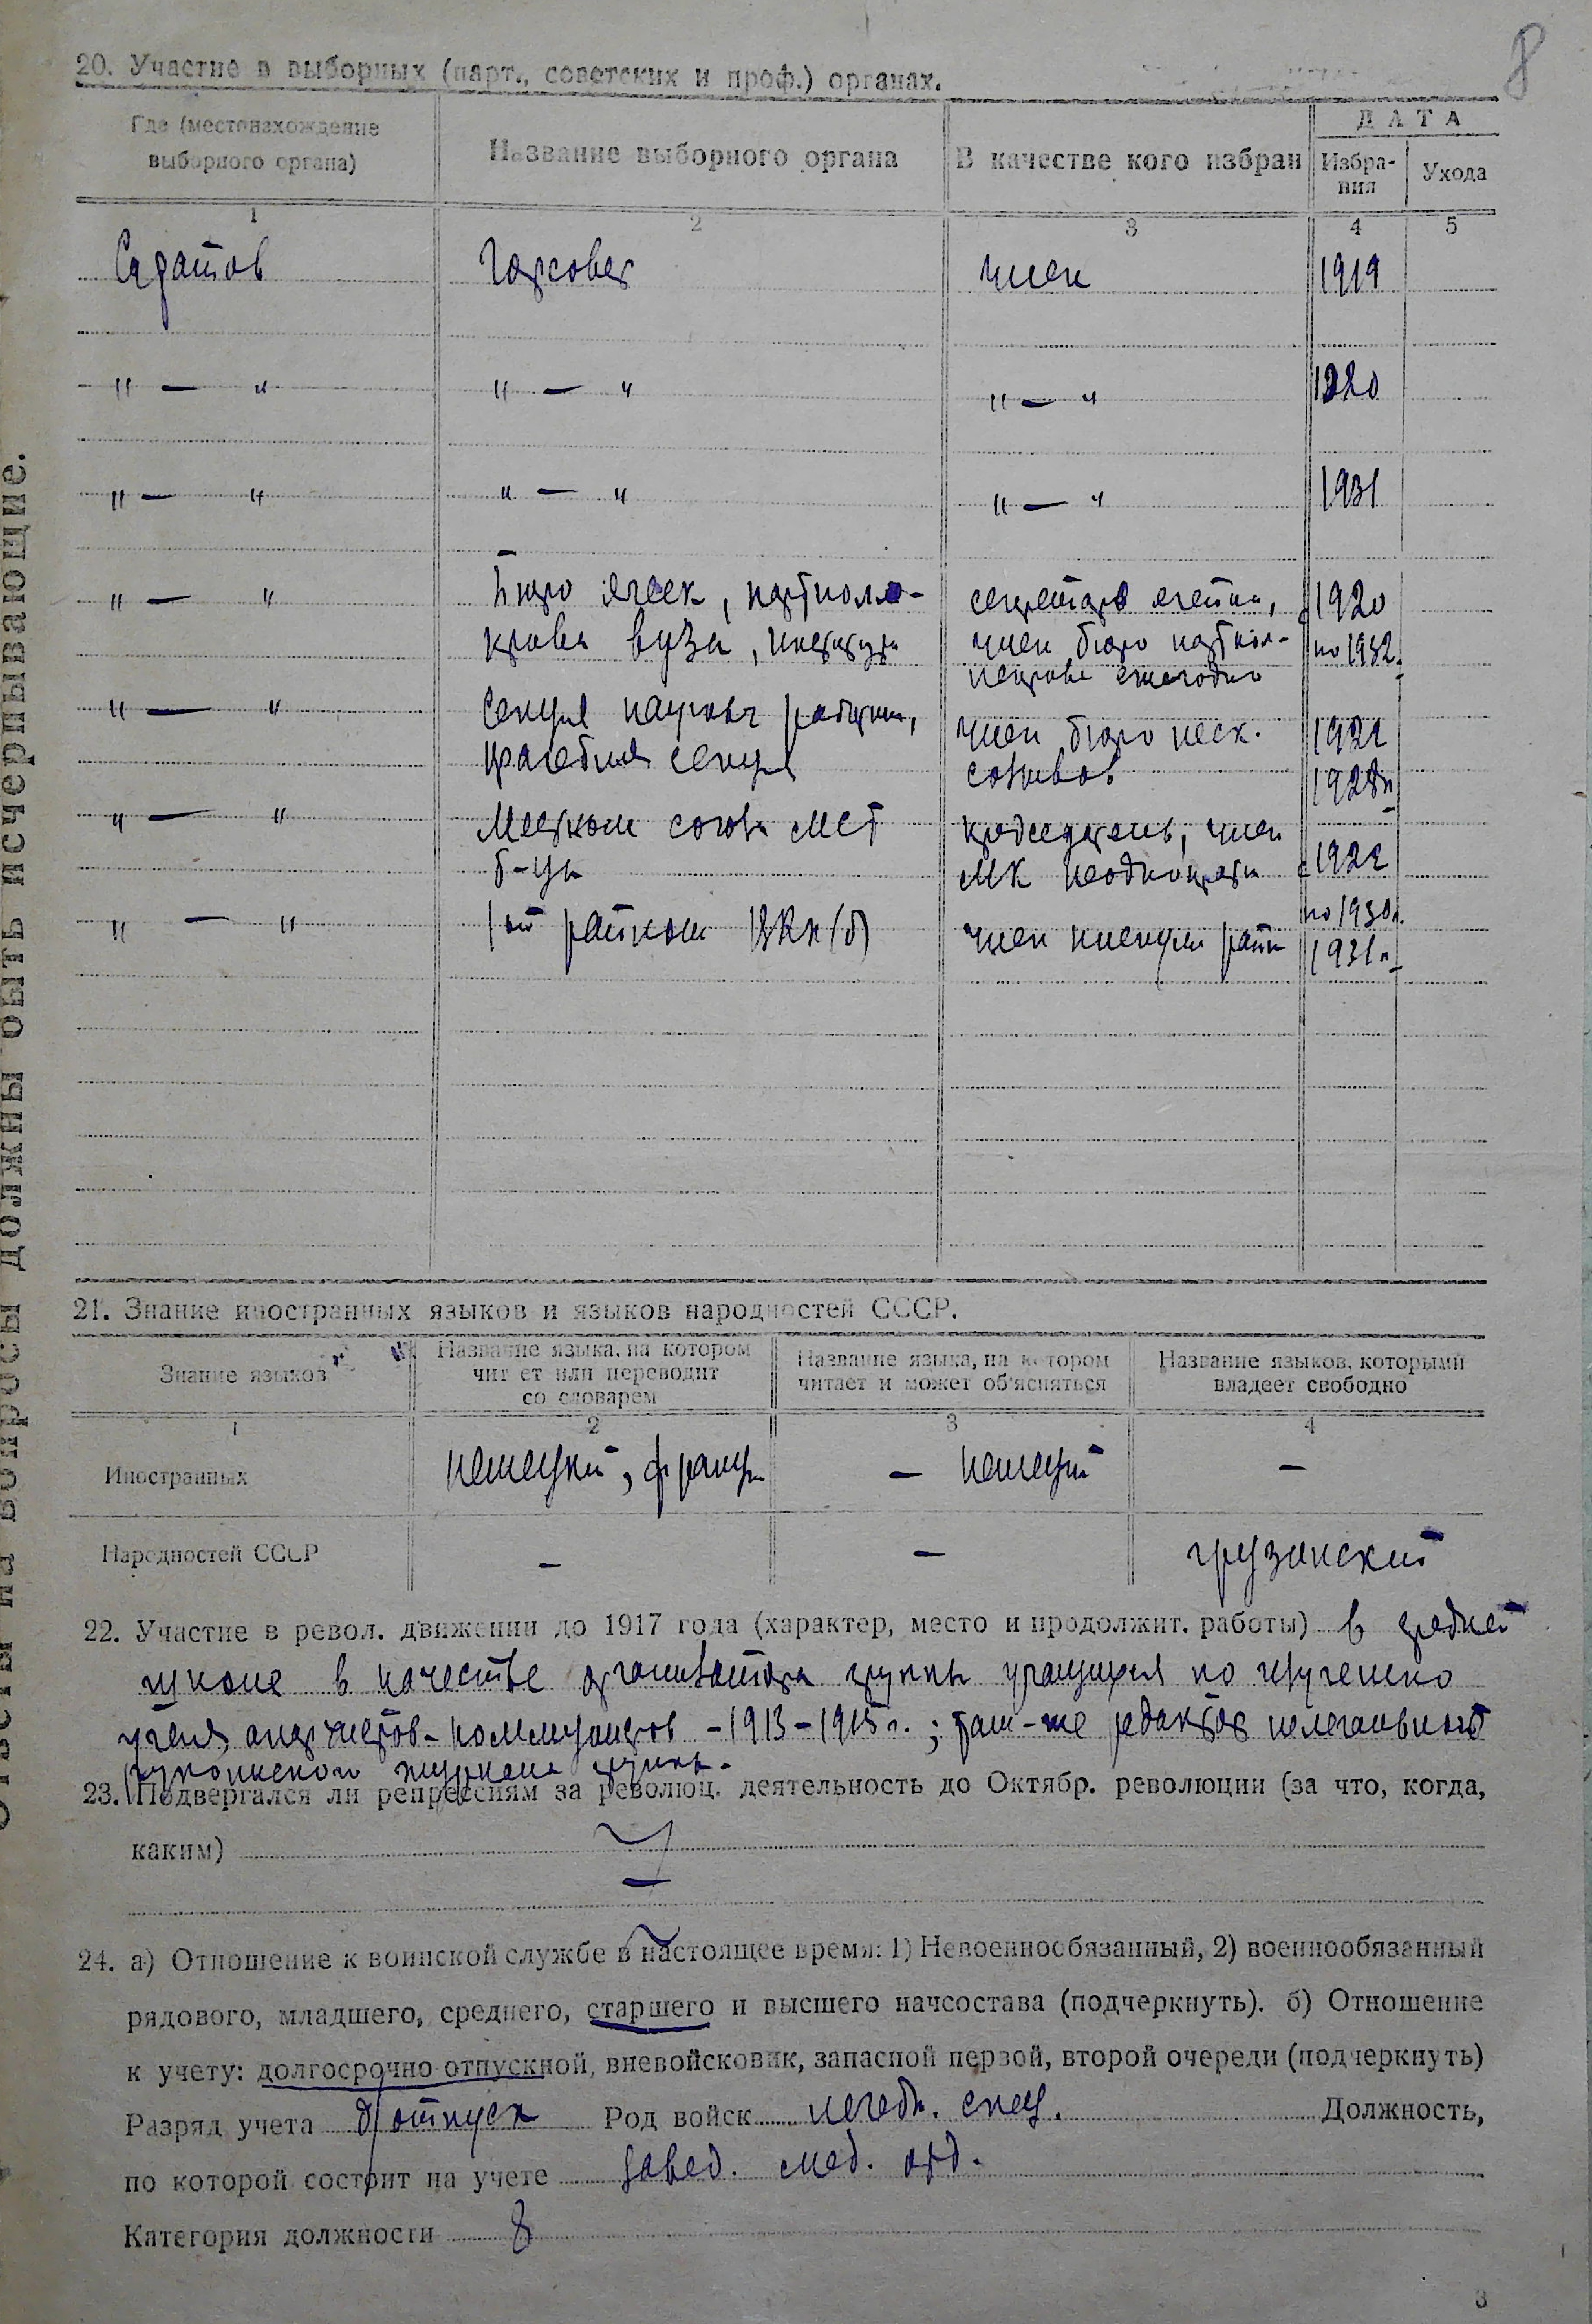 8
20. Участие в выборных (парт., советских и проф.) органах.
Где (местонахождение
выборного органа)
Название выборного органа
В качестве кого избран
ДАТА
Избра-
ния
Ухода
1 2 3 4 5
Саратов Горсовет член 1919
" — " " — " " — " 1920
" — " " — " " — " 1931
" — " Бюро ячеек, партколле- секретарь ячейки, с 1920
вуза, член бюро по 1932.
ежегодно
" — " Секция научн. работн., член бюро неск. 1921
врачебная секция созывов 1928 г.
" — " Местком союза МСТ председатель, член
б-цы МК неоднократн с 1922
по 1930 г.
" — " 1ый райком ВКП(б) член пленума райк 1931 г.
21. Знание иностранных языков и языков народностей СССР.
Знание языков
Название языка, на котором
читает или переводит
со словарем
Название языка, на котором
читает и может об'ясняться
Название языков, которыми
владеет свободно
1 2 3 4
Иностранных немецкий, франц. — немецкий —
Народностей СССР — — грузинский
22. Участие в револ. движении до 1917 года (характер, место и продолжит. работы) в средней
школе в качестве организатора группы учащихся по изучению
учения анархистов-коммунистов – 1913–1915 г.; там-же редактор нелегального
рукописного журнала группы.
23. Подвергался ли репрессиям за революц. деятельность до Октябр. революции (за что, когда,
каким)
—
24. а) Отношение к воинской службе в настоящее время: 1) Невоеннообязанный, 2) военнообязанный
рядового, младшего, среднего, старшего и высшего начсостава (подчеркнуть). б) Отношение
к учету: долгосрочно-отпускной, вневойсковик, запасной первой, второй очереди (подчеркнуть)
Разряд учета д/отпуск Род войск лечебн. спец. Должность,
по которой состоит на учете завед. мед. отд.
Категория должности 8
Ответы на вопросы должны быть исчерпывающие.
3